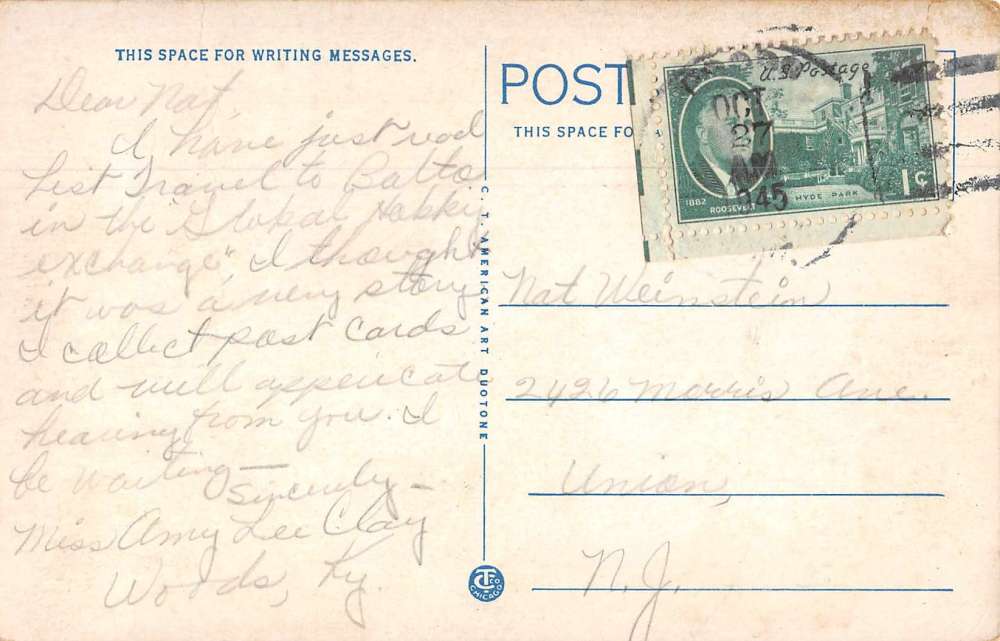 THIS SPACE FOR WRITING MESSAGES.
Dear Nat,
I have just read
List Travel to Balto
in the "Global Hobby
exchange", I thought
it was a very story
I collect post cards
and will appericate
hearing from you. I
be waiting—
Sincerely –
Miss Amy Lee Clay
Woods, Ky.
C. T. AMERICAN ART DUOTONE
CT CO
CHICAGO
POST
THIS SPACE FO
U.S. Postage
1882
ROOSEVELT
HYDE PARK
1¢
OCT
27
AM
1945
Nat Weinstein
2426 Morris Ave.
Union,
N. J.